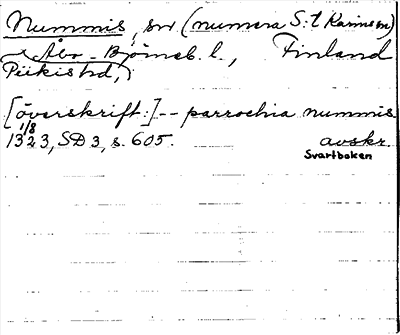 Nummis, sn (numera S:t Karins sn)
Åbo-Björneb. l., Finland
Piikis hd,
[överskrift:] -- parrochia nummis
1/8
1323, SD 3, s. 605. avskr.
Svartboken